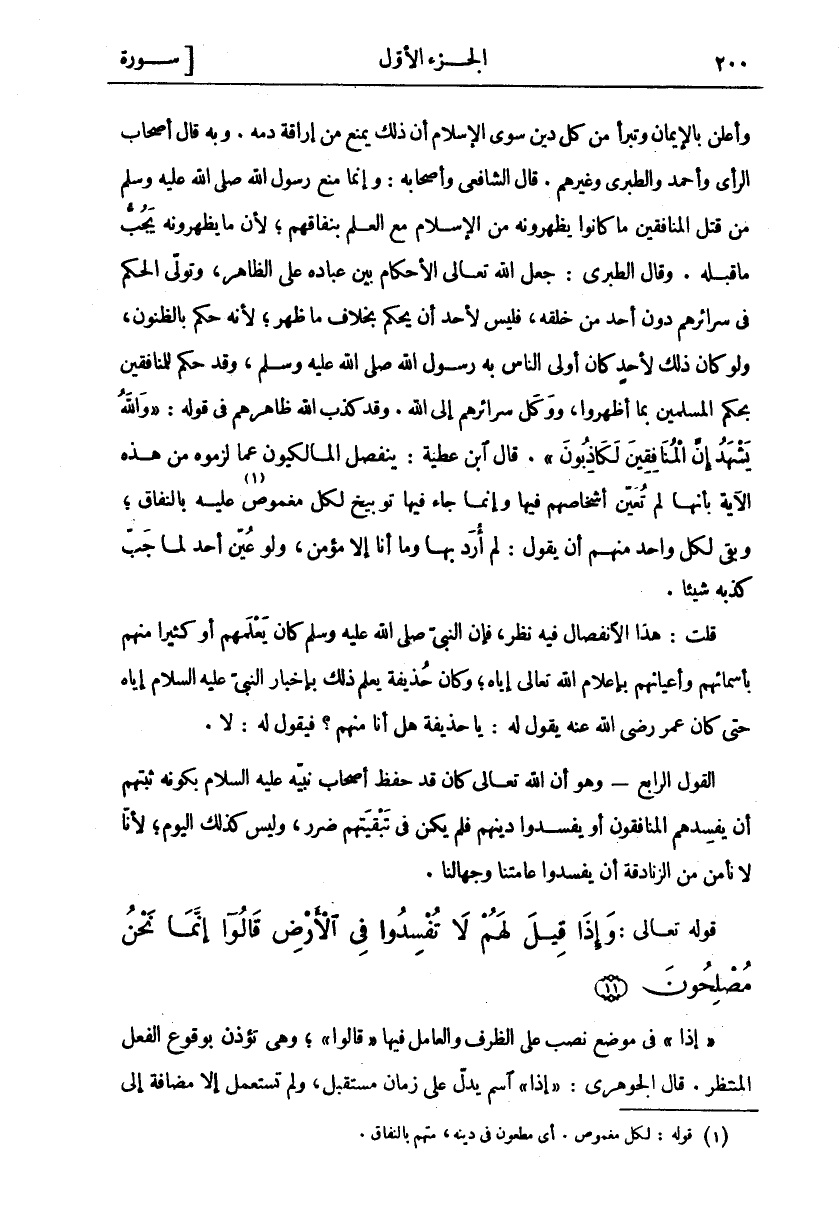 ٢٠٠ الجـــزء الأوّل [ ســـورة
وأعلن بالإيمان وتبرأ من كل دين سوى الإسلام أن ذلك يمنع من إراقة دمه . وبه قال أصحاب
الرأى وأحمد والطبرى وغيرهم . قال الشافعى وأصحابه : وإنما منع رسول الله صلى الله عليه وسلم
من قتل المنافقين ما كانوا يظهرونه من الإسلام مع العلم بنفاقهم ؛ لأن ما يظهرونه يَجُبُّ
ماقبله . وقال الطبرى : جعل الله تعالى الأحكام بين عباده على الظاهر ، وتولّى الحكم
فى سرائرهم دون أحد من خلقه ، فليس لأحد أن يحكم بخلاف ما ظهر ؛ لأنه حكم بالظنون ،
ولو كان ذلك لأحدٍ كان أولى الناس به رسول الله صلى الله عليه وسلم ، وقد حكم للمنافقين
بحكم المسلمين بما أظهروا ، ووَكَل سرائرهم إلى الله . وقد كذب الله ظاهرهم فى قوله : « وَاللهُ
يَشْهَدُ إِنَّ الْمُنَافِقِينَ لَكَاذِبُونَ » . قال ٱبن عطية : ينفصل المالكيون عما لزموه من هذه
الآية بأنها لم تُعَيّن أشخاصهم فيها وإنما جاء فيها توبيخ لكل مغموص (١) عليه بالنفاق ؛
وبقى لكل واحد منهم أن يقول : لم أُرَد بها وما أنا إلا مؤمن ، ولو عُيّن أحد لما جَبّ
كذبه شيئا .
قلت : هذا الأنفصال فيه نظر ، فإن النبىّ صلى الله عليه وسلم كان يَعْلَمهم أو كثيرا منهم
بأسمائهم وأعيانهم بإعلام الله تعالى إياه ؛ وكان حُذيفة يعلم ذلك بإخبار النبىّ عليه السلام إياه
حتى كان عمر رضى الله عنه يقول له : يا حذيفة هل أنا منهم ؟ فيقول له : لا .
القول الرابع – وهو أن الله تعالى كان قد حفظ أصحاب نبيّه عليه السلام بكونه ثبتهم
أن يفسِدهم المنافقون أو يفسدوا دينهم فلم يكن فى تَبْقيَتهم ضرر ، وليس كذلك اليوم ؛ لأنّا
لا نأمن من الزنادقة أن يفسدوا عامتنا وجهالنا .
قوله تعالى : وَإِذَا قِيلَ لَهُمْ لَا تُفْسِدُوا فِى ٱلْأَرْضِ قَالُوٓا إِنَّمَا نَحْنُ
مُصْلِحُونَ ١١
« إذا » فى موضع نصب على الظرف والعامل فيها « قالوا » ؛ وهى تؤذن بوقوع الفعل
المنتظر . قال الجوهرى : « إذا » ٱسم يدلّ على زمان مستقبل ، ولم تستعمل إلا مضافة إلى
(١) قوله : لكل مغموص . أى مطعون فى دينه ، متهم بالنفاق .